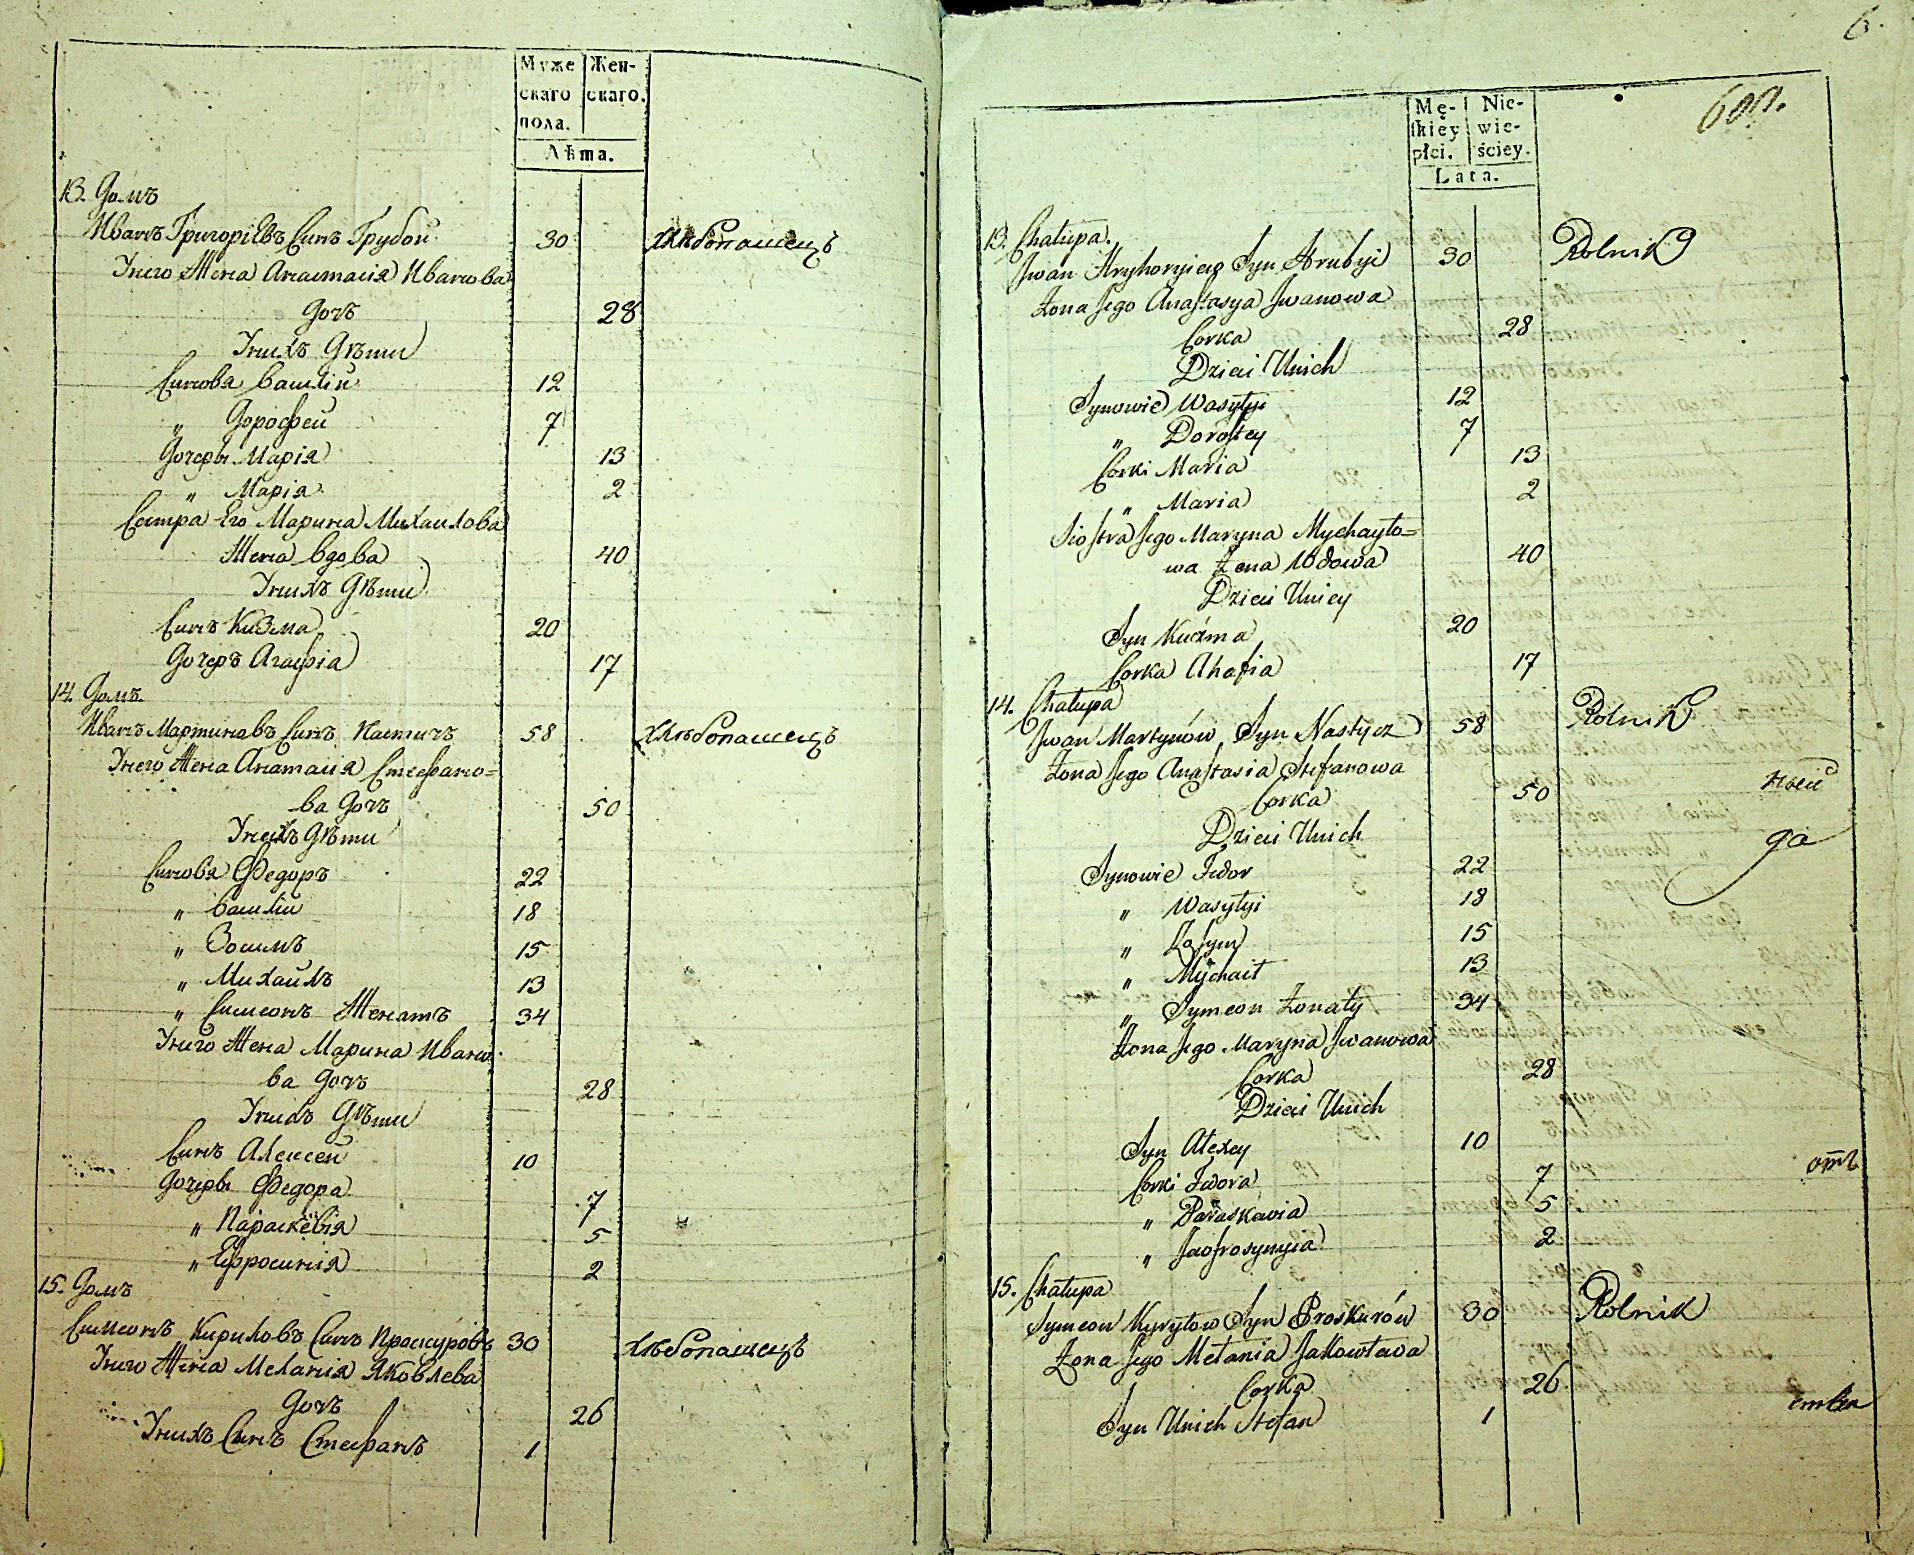 Муже Жен-
скаго скаго.
пола.
Лѣта.
13. Домъ
Иванъ Григоріевъ Синъ Грубой 30 Хлѣбопашецъ
Унего Жена Анастасія Иванова
Дочъ 28
Унихъ Дѣти
Синовя Василій 12
„ Дорофей 7
Дочери Марія 13
„ Марія 2
Сестра Его Марина Михаилова
Жена Вдова 40
Унихъ Дѣти
Синъ Кузма 20
Дочеръ Агафія 17
14. Домъ
Иванъ Мартиновъ Синъ Настичъ 58 Хлѣбопашецъ
Унего Жена Анатасія Стефано=
ва Дочъ 50
Унихъ Дѣти
Синовя Федоръ 22
„ Василій 18
„ Зосимъ 15
„ Михаилъ 13
„ Симеонъ Женатъ 34
Унего Жена Марина Ивано
ва Дочъ 28
Унихъ Дѣти
Синъ Алексей 10
Дочери Федора 7
„ Параскевія 5
„ Ефросинія 2
15. Домъ
Симеонъ Кириловъ Синъ Проскуровъ 30 Хлѣбопашецъ
Унего Жена Меланія Яковлева
Дочъ 26
Унихъ Синъ Стефанъ 1
6.
Mę- Nie-
skiey wie-
płci. ściey.
Lata.
13. Chałupa.
Jwan Hryhoryiew Syn Hrubyi 30 Rolnik
Żona Jego Anastasya Jwanowa
Corka 28
Dzieci Unich
Synowie Wasylyi 12
„ Dorofey 7
Corki Maria 13
„ Maria 2
Siostra Jego Maryna Mychayło=
wa Żona Wdowa 40
Dzieci Uniey
Syn Kuźma 20
Corka Ahafia 17
14. Chałupa
Jwan Martynów Syn Nastycz 58 Rolnik
Żona Jego Anastasia Stefanowa
Corka 50
Dzieci Unich
Synowie Fedor 22
„ Wasylyi 18
„ Zosym 15
„ Mychaił 13
„ Symeon Żonaty 34
Żona Jego Maryna Jwanowa
Corka 28
Dzieci Unich
Syn Alexey 10
Corki Fedora 7
„ Paraskawia 5
„ Jaofrosynyia 2
15. Chałupa
Symeon Kyryłow Syn Proskurów 30 Rolnik
Żona Jego Mełania Jakowlewa
Corka 26
Syn Unich Stefan 1